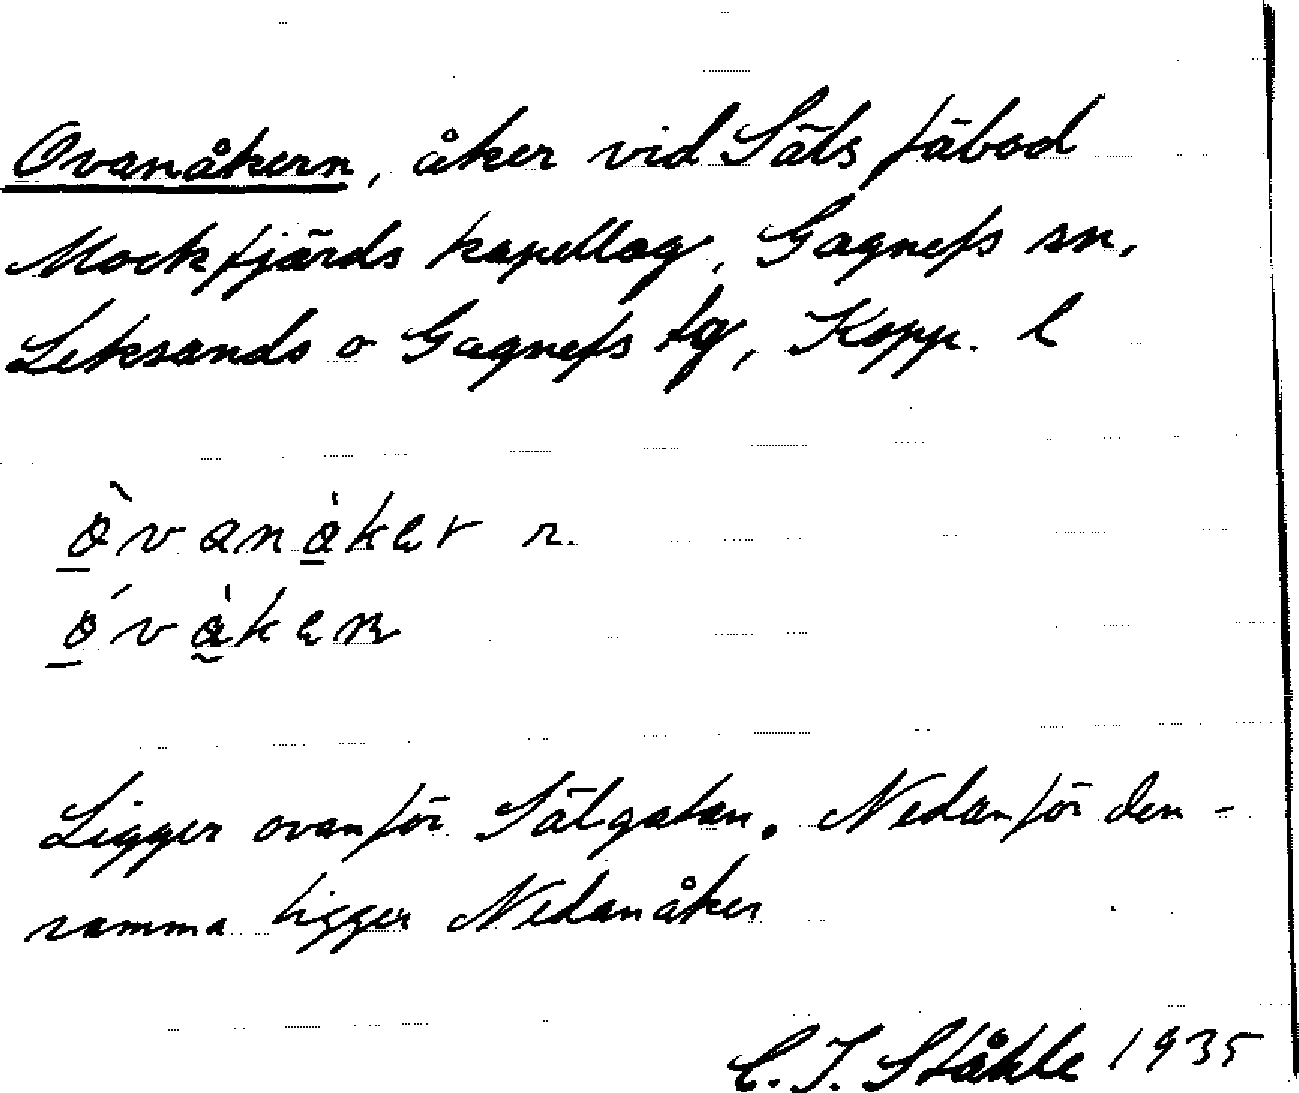 Ovanåkern, åker vid Säls fäbod
Mockfjärds kapellag, Gagnefs sn,
Leksands o Gagnefs tg, Kopp. l
òvanåker n.
óvåken
Ligger ovanför Sälgatan. Nedanför den-
samma ligger Nedanåker
C. I. Ståhle 1935